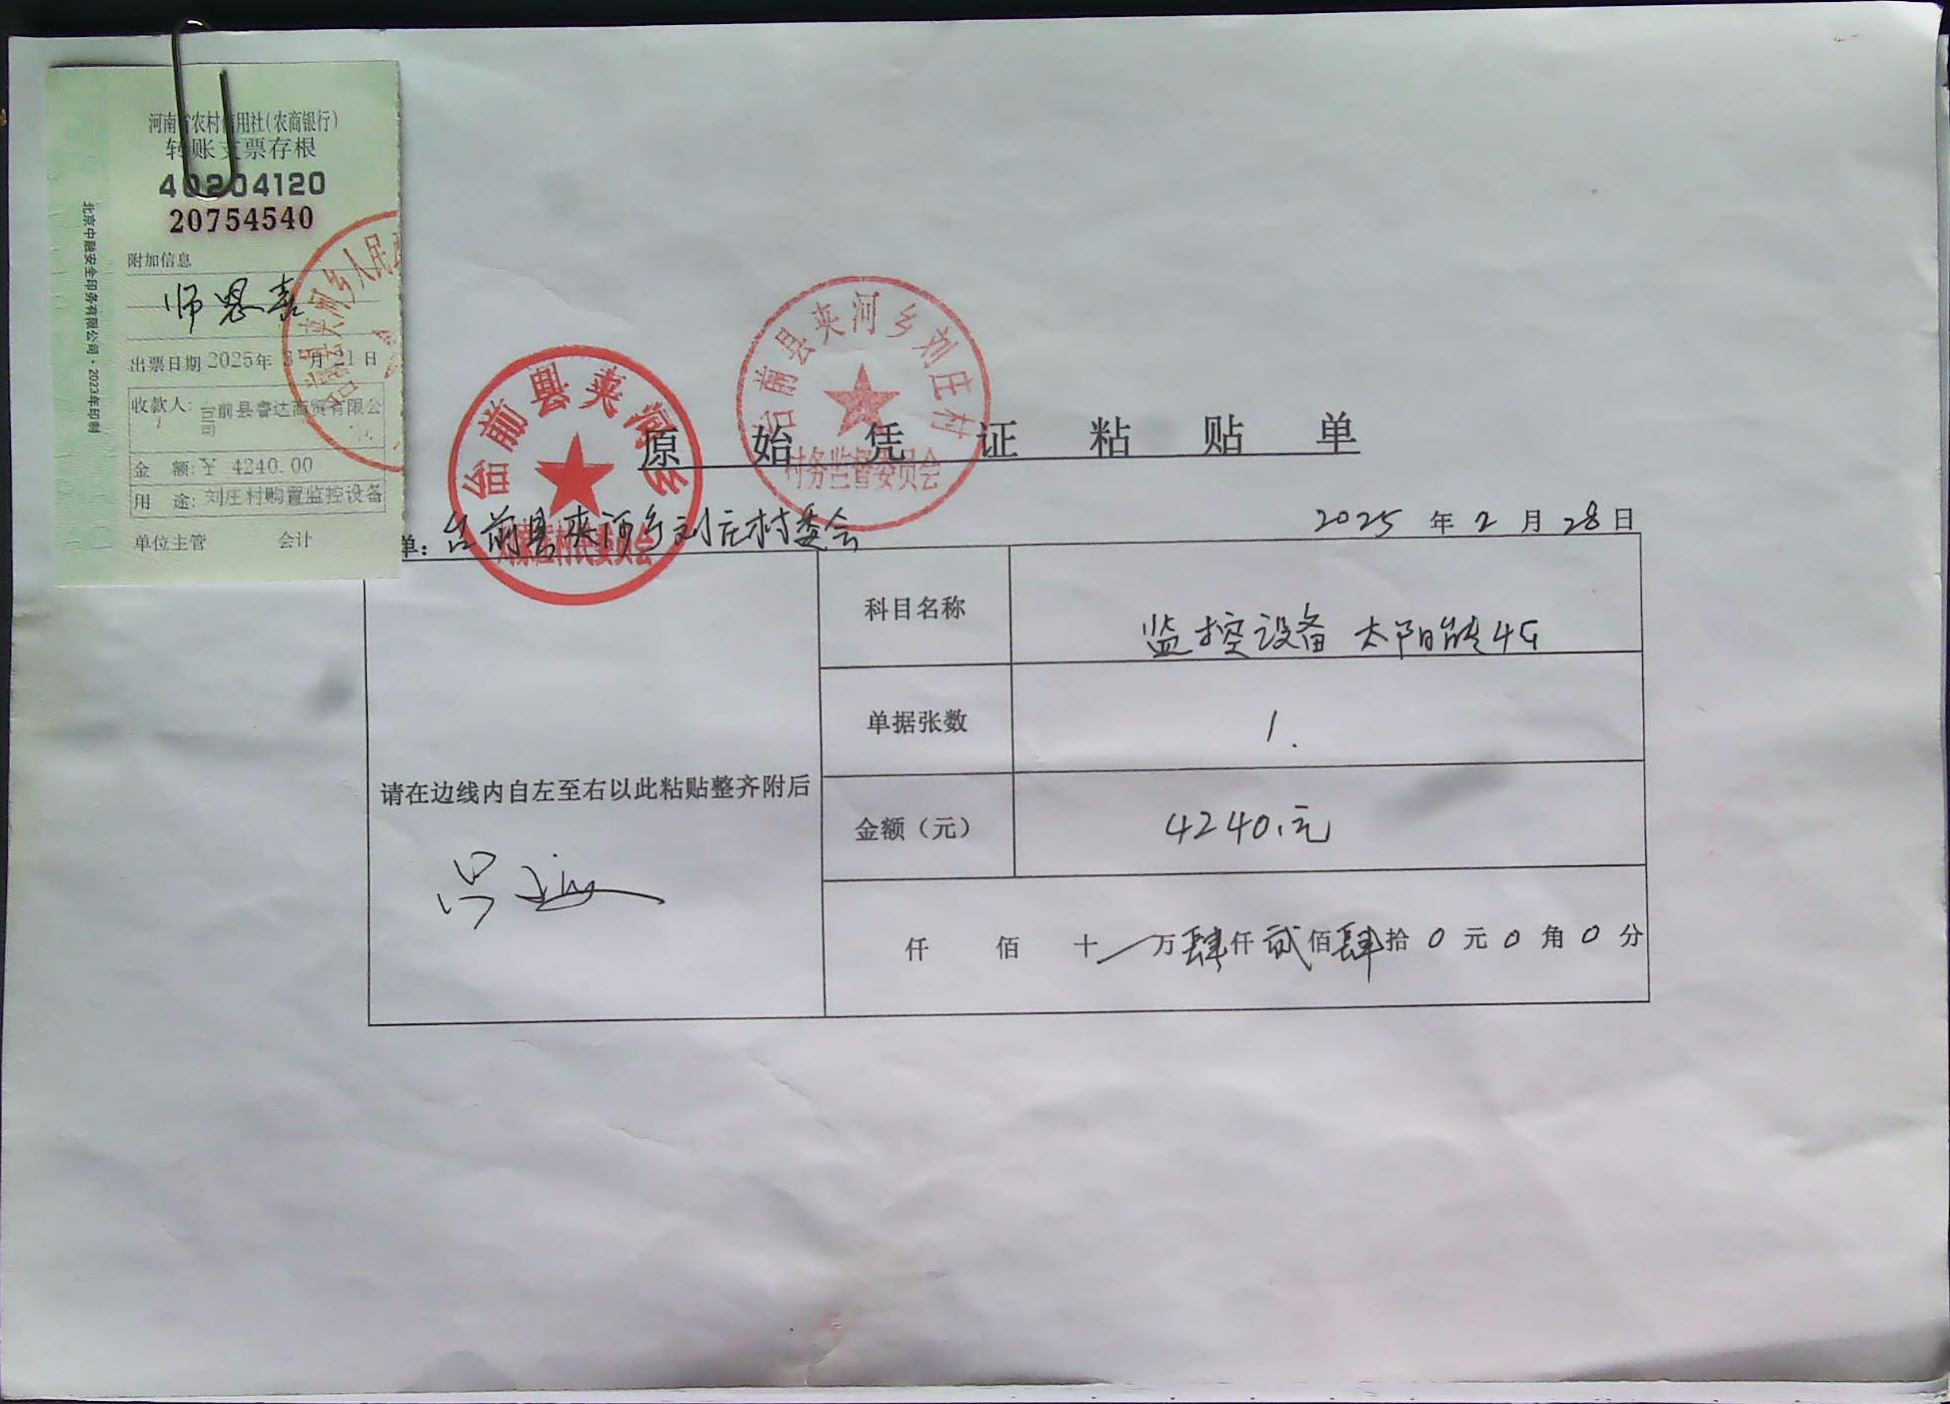 河南省农村信用社(农商银行)
转账支票存根
40204120
20754540
附加信息
师恩嘉
出票日期 2025年 3 月 21 日
收款人: 台前县睿达商贸有限公
司
金 额: ¥ 4240.00
用 途: 刘庄村购置监控设备
单位主管 会计
北京中融安全印务有限公司·2023年印制
台前县夹河乡人民
台前县夹河乡
台前县夹河乡刘庄村
村务监督委员会
原始凭证粘贴单
单: 台前县夹河乡刘庄村委会
2025 年 2 月 28 日
科目名称 监控设备 太阳能4G
单据张数 1.
请在边线内自左至右以此粘贴整齐附后
金额（元） 4240.元
仟 佰 十 万肆仟贰佰肆拾 0 元 0 角 0 分